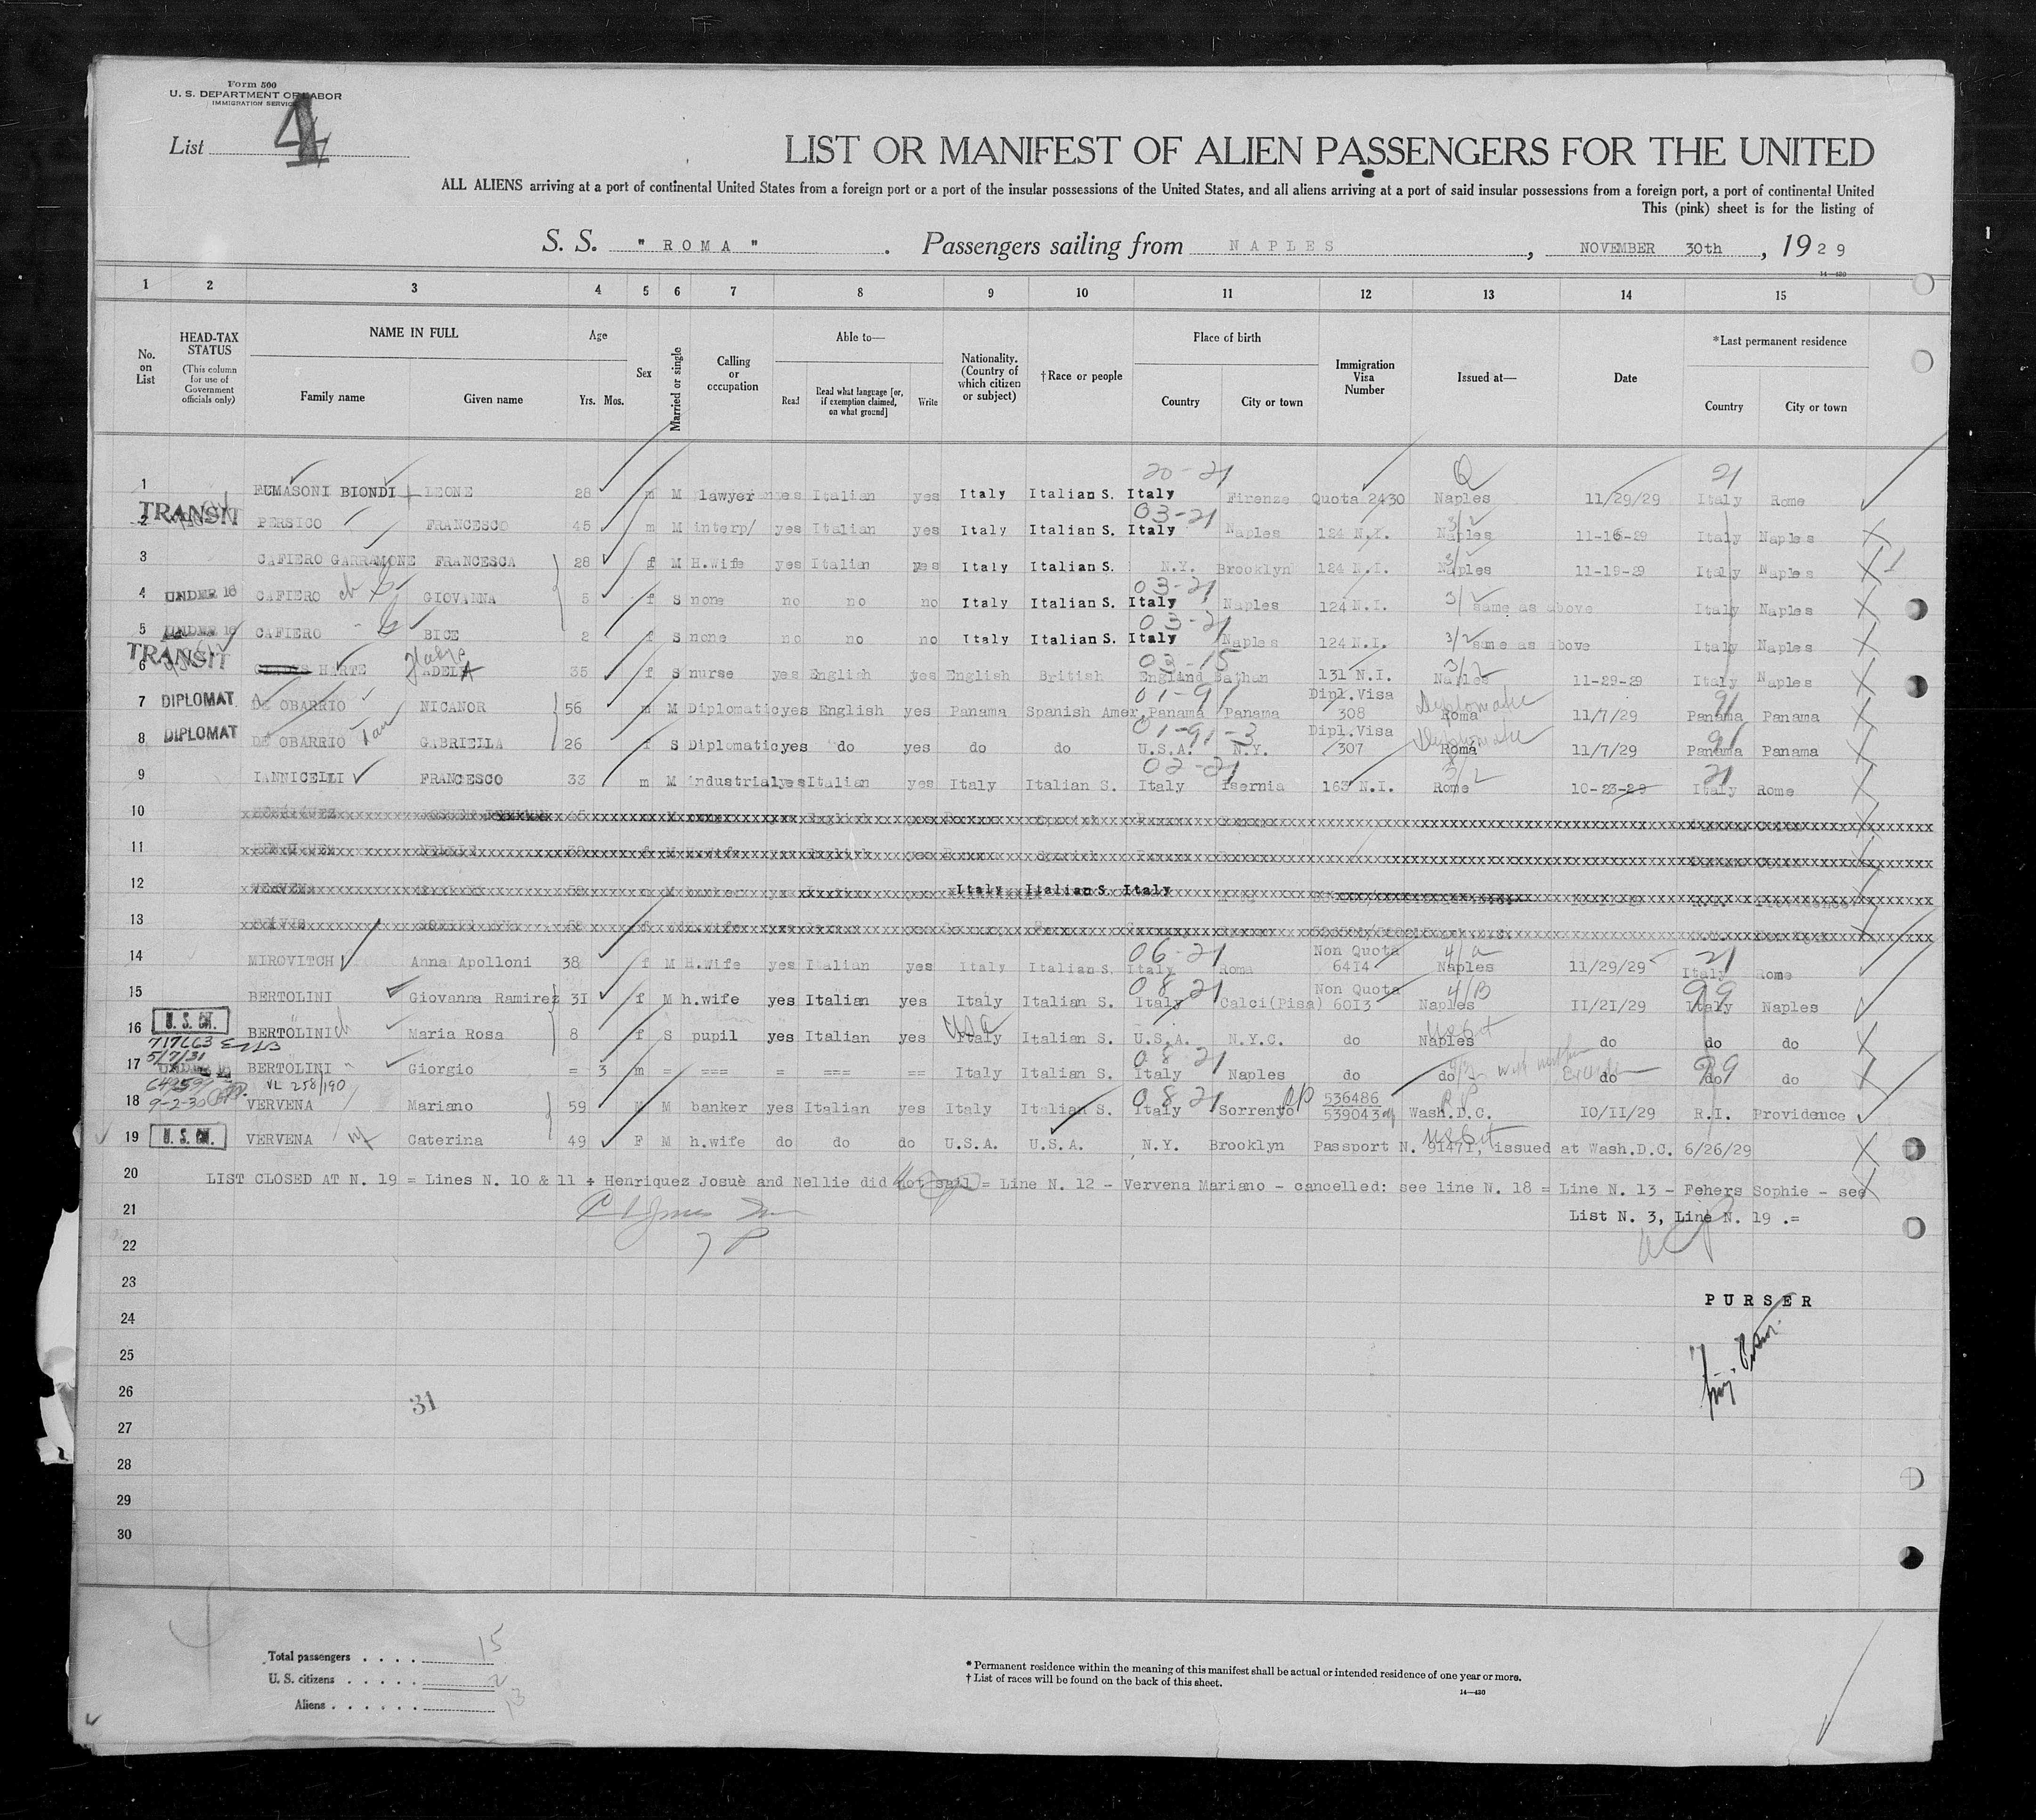 Form 500
U. S. DEPARTMENT OF LABOR
IMMIGRATION SERVICE
List 4
LIST OR MANIFEST OF ALIEN PASSENGERS FOR THE UNITED
ALL ALIENS arriving at a port of continental United States from a foreign port or a port of the insular possessions of the United States, and all aliens arriving at a port of said insular possessions from a foreign port, a port of continental United
This (pink) sheet is for the listing of
S. S. " ROMA " . Passengers sailing from NAPLES , NOVEMBER 30th , 1929
14—430
1 2 3 4 5 6 7 8 9 10 11 12 13 14 15
No. on List HEAD-TAX STATUS (This column for use of Government officials only) NAME IN FULL Family name Given name Age Yrs. Mos. Sex Married or single Calling or occupation Able to— Read Read what language [or, if exemption claimed, on what ground] Write Nationality. (Country of which citizen or subject) †Race or people Place of birth Country City or town Immigration Visa Number Issued at— Date *Last permanent residence Country City or town
20-21 Q 21
1 FUMASONI BIONDI LEONE 28 m M lawyer yes Italian yes Italy Italian S. Italy Firenze Quota 2430 Naples 11/29/29 Italy Rome
TRANSIT 03-21 3/2
2 PERSICO FRANCESCO 45 m M interp/ yes Italian yes Italy Italian S. Italy Naples 124 N.I. Naples 11-16-29 Italy Naples
3 CAFIERO GARRAMONE FRANCESCA 28 f M H.wife yes Italian yes Italy Italian S. N.Y. Brooklyn 124 N.I. Naples 11-19-29 Italy Naples
03-21
4 UNDER 16 CAFIERO GIOVANNA 5 f S none no no no Italy Italian S. Italy Naples 124 N.I. 3/2 same as above Italy Naples
03-21
5 UNDER 16 CAFIERO BICE 2 f S none no no no Italy Italian S. Italy Naples 124 N.I. 3/2 same as above Italy Naples
TRANSIT 03-15 3/2
6 HARTE ADELA 35 f S nurse yes English yes English British England Bathan 131 N.I. Naples 11-29-29 Italy Naples
01-91 Dipl.Visa Diplomatic 91
7 DIPLOMAT DE OBARRIO NICANOR 56 m M Diplomatic yes English yes Panama Spanish Amer. Panama Panama 308 Roma 11/7/29 Panama Panama
01-91-3 Dipl.Visa Diplomatic 91
8 DIPLOMAT DE OBARRIO GABRIELLA 26 f S Diplomatic yes do yes do do U.S.A. N.Y. 307 Roma 11/7/29 Panama Panama
02-21 3/2 21
9 IANNICELLI FRANCESCO 33 m M industrial yes Italian yes Italy Italian S. Italy Isernia 163 N.I. Rome 10-23-29 Italy Rome
10
11
12 Italy Italian S. Italy
13
06-21 Non Quota 4/a 21
14 MIROVITCH Anna Apolloni 38 f M H.wife yes Italian yes Italy Italian S. Italy Roma 6414 Naples 11/29/29 Italy Rome
08 21 Non Quota 4/B 99
15 BERTOLINI Giovanna Ramirez 31 f M h.wife yes Italian yes Italy Italian S. Italy Calci(Pisa) 6013 Naples 11/21/29 Italy Naples
U. S. USA
16 BERTOLINI ch Maria Rosa 8 f S pupil yes Italian yes Italy Italian S. U.S.A. N.Y.C. do Naples do do do
717663
5/7/31 08-21 with mother 99
17 UNDER 16 BERTOLINI Giorgio = 3 m = === = === == Italy Italian S. Italy Naples do do do do do
VL 258/190
9-2-30 08 21 536486
18 VERVENA Mariano 59 M M banker yes Italian yes Italy Italian S. Italy Sorrento 539043 Wash.D.C. 10/11/29 R.I. Providence
19 U. S. VERVENA Caterina 49 F M h.wife do do do U.S.A. U.S.A. N.Y. Brooklyn Passport N. 91471, issued at Wash.D.C. 6/26/29
20 LIST CLOSED AT N. 19 = Lines N. 10 & 11 ÷ Henriquez Josuè and Nellie did not sail = Line N. 12 - Vervena Mariano - cancelled: see line N. 18 = Line N. 13 - Fehers Sophie - see
21 List N. 3, Line N. 19 .=
22
23
PURSER
24
25
26
31
27
28
29
30
Total passengers . . . . 15
U. S. citizens . . . . . 2
Aliens . . . . . . 13
* Permanent residence within the meaning of this manifest shall be actual or intended residence of one year or more.
† List of races will be found on the back of this sheet.
14—430